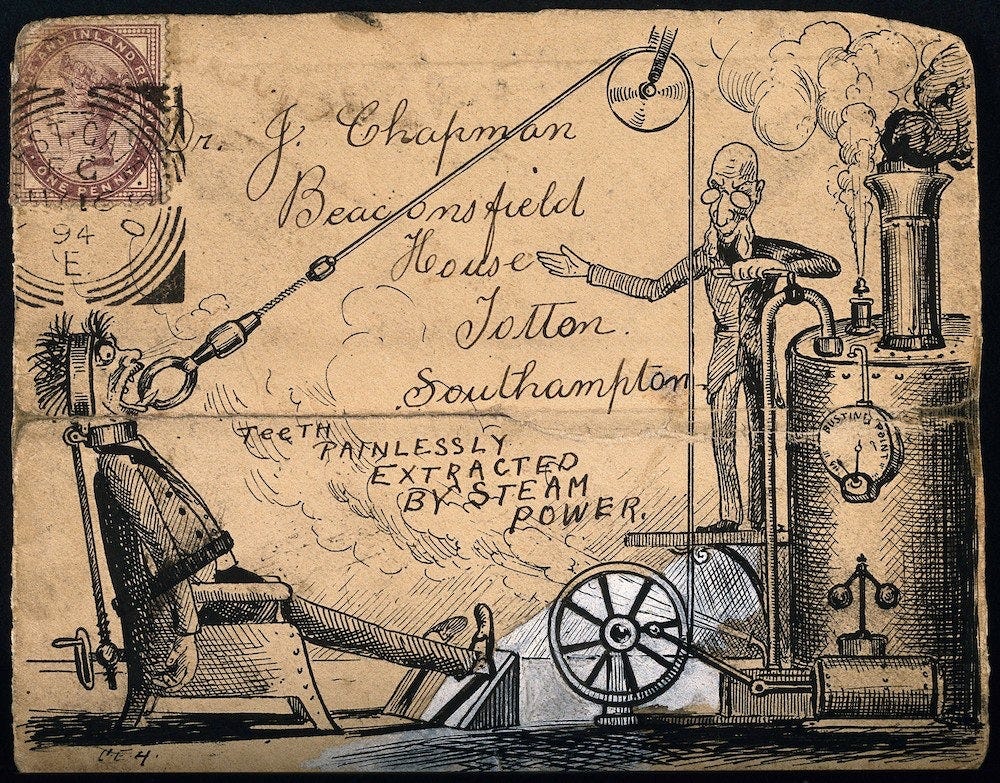 AND INLAND RE
ONE PENNY
94
E
Dr. J. Chapman
Beaconsfield
House
Totton.
Southampton
TeeTH
PAINLESSLY
EXTRACTED
BY STEAM
POWER.
BUSTING POINT
CEH.